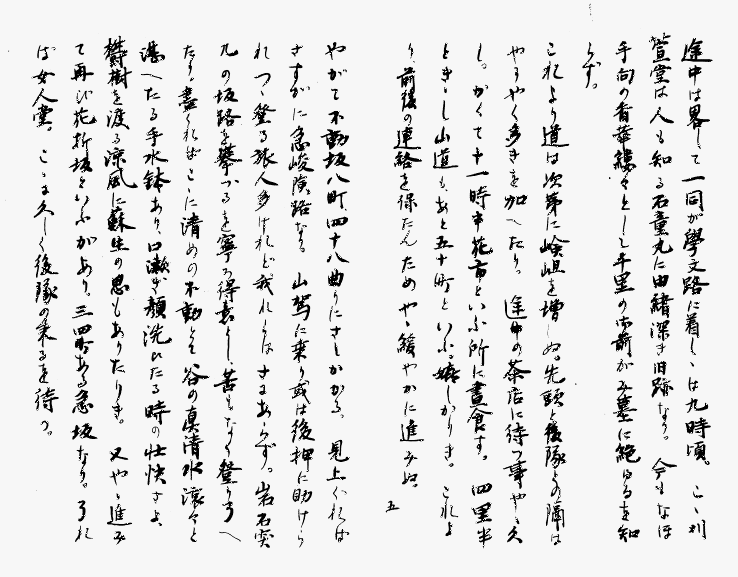 途中は畧して一同が學文路に着しゝは九時頃。こゝ刈
萱堂は人も知る石童丸に由緒深き旧跡なり。今もなほ
手向の香華縷々として千里の御前がみ墓に絶ゆるを知
らず。
これより道は次第に嶮岨を増しぬ。先頭と後隊との隔は
やうやく多きを加へたり。途中の茶店に待つ事やゝ久
し。かくて十一時半花市といふ所に晝食す。四里半
ときゝし山道も、あと五十町といふ。嬉しかりき。これよ
り、前後の連絡を保たんためやゝ緩やかに進みぬ。
五
やがて不動坂八町四十八曲りにさしかかる。見上ぐれば
さすがに急峻険路なる。山駕に乗り或は後押に助けら
れつゝ登る旅人多けれど、我れらはさにあらず。岩石突
兀の坂路を攀づるを寧ろ得意とし、苦もなく登り了へ
たり。盡くればこゝに清めの不動とて谷の真清水滾々と
湛へたる手水鉢あり、口漱ぎ顔洗ひたる時の壮快さよ、
欝樹を渡る涼風に蘇生の思もありたりき。又やゝ進み
て再び花折坂といふがあり。三四町ある急坂なり。了れ
ば女人堂。こゝに久しく後隊の来るを待つ。